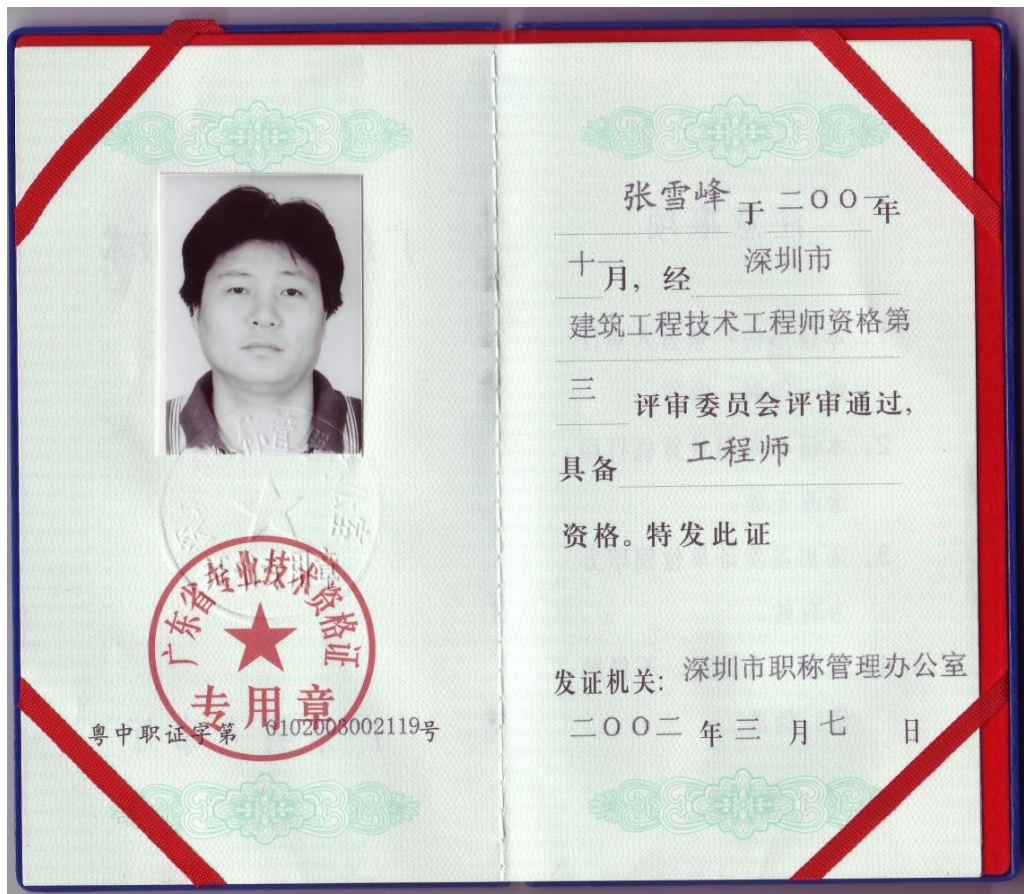 广东省专业技术资格证
专用章
粤中职证字第 0102003002119号
张雪峰于二〇〇一年
十一月，经 深圳市
建筑工程技术工程师资格第
三 评审委员会评审通过，
具备 工程师
资格。特发此证
发证机关：深圳市职称管理办公室
二〇〇二年三月七日